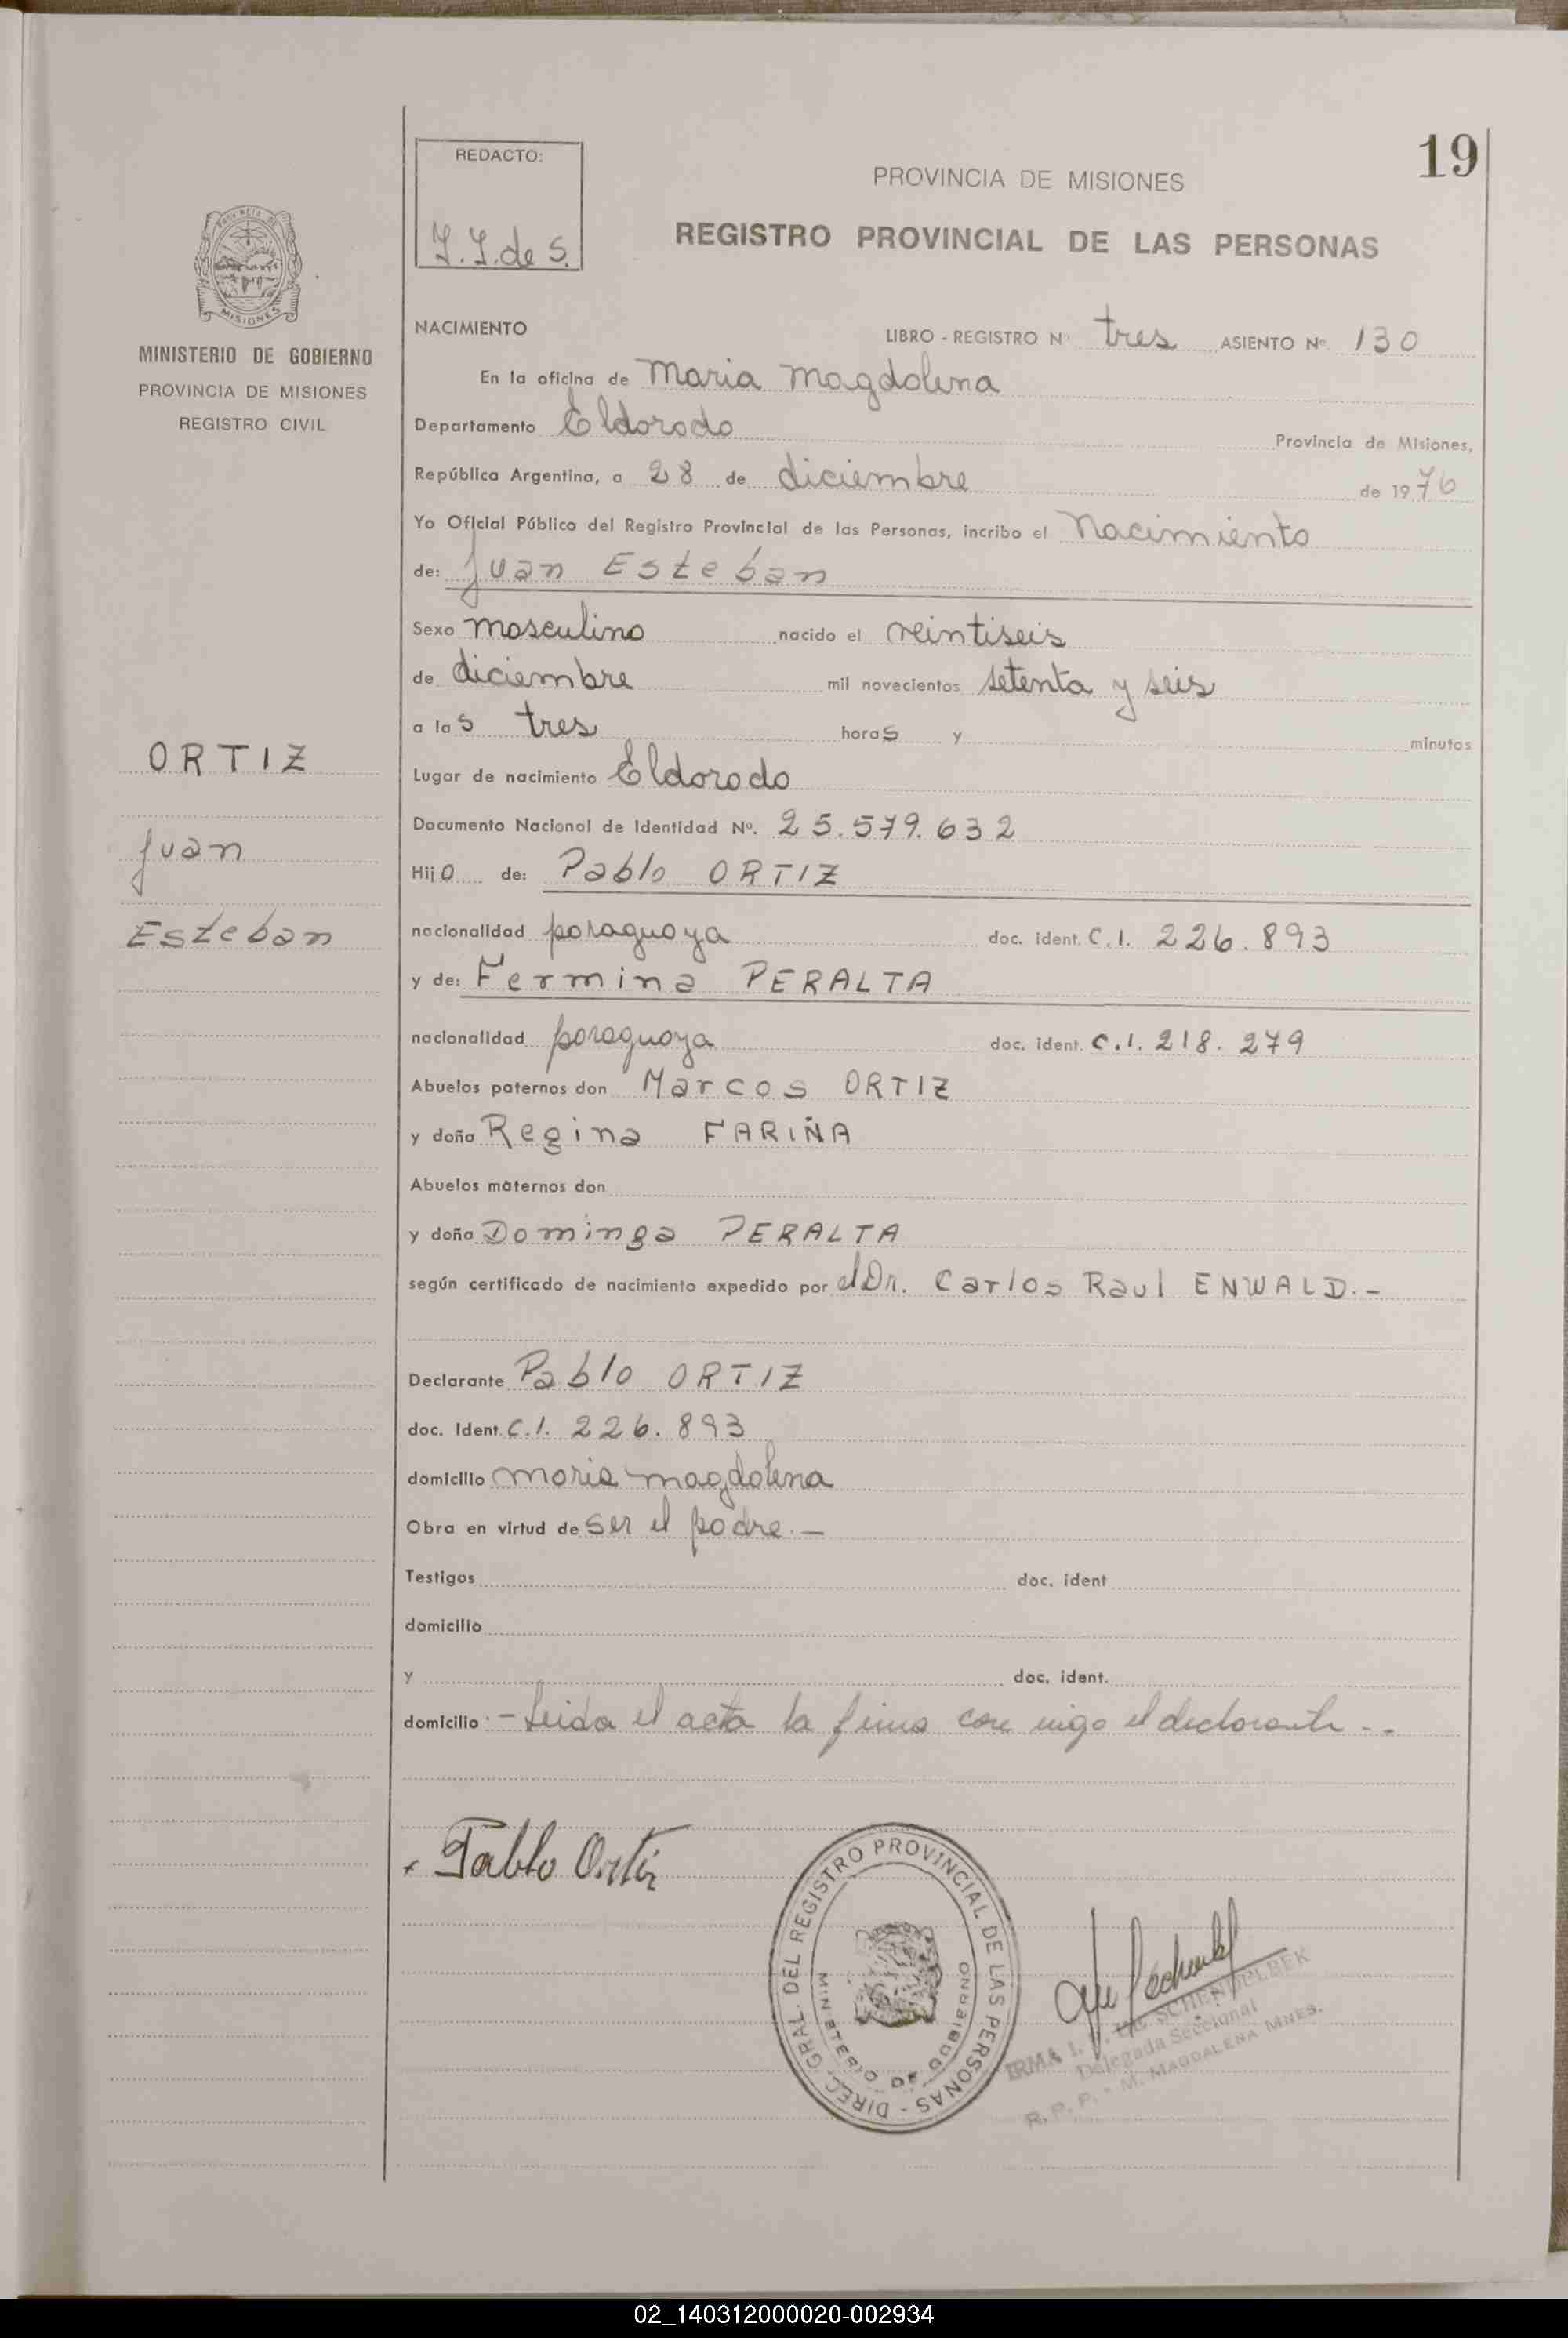 19
REDACTO:
PROVINCIA DE MISIONES
REGISTRO PROVINCIAL DE LAS PERSONAS
MISIONES
MINISTERIO DE GOBIERNO
PROVINCIA DE MISIONES
REGISTRO CIVIL
ORTIZ
Juan
Esteban
NACIMIENTO LIBRO - REGISTRO Nº tres ASIENTO Nº 130
En la oficina de Maria Magdalena
Departamento Eldorado Provincia de Misiones,
República Argentina, a 28 de diciembre de 1976
Yo Oficial Público del Registro Provincial de las Personas, incribo el Nacimiento
de: Juan Esteban
Sexo masculino nacido el veintiseis
de diciembre mil novecientos setenta y seis
a las tres horas y minutos
Lugar de nacimiento Eldorado
Documento Nacional de Identidad Nº. 25.579.632
Hijo de: Pablo ORTIZ
nacionalidad paraguaya doc. ident. C.I. 226.893
y de: Fermina PERALTA
nacionalidad paraguaya doc. ident. C.I. 218.279
Abuelos paternos don Marcos ORTIZ
y doña Regina FARIÑA
Abuelos maternos don
y doña Dominga PERALTA
según certificado de nacimiento expedido por el Dr. Carlos Raul ENWALD.-
Declarante Pablo ORTIZ
doc. Ident. C.I. 226.893
domicilio Maria Magdalena
Obra en virtud de ser el padre.-
Testigos doc. ident
domicilio
y doc. ident.
domicilio - Leida el acta la firma con migo el declarante --
Pablo Ortiz
DIREC. GRAL. DEL REGISTRO PROVINCIAL DE LAS PERSONAS -
MINISTERIO DE GOBIERNO
IRMA DE SCHENDELBEK
Delegada Seccional
R. P. P. - M. MAGDALENA MNES.
02_140312000020-002934